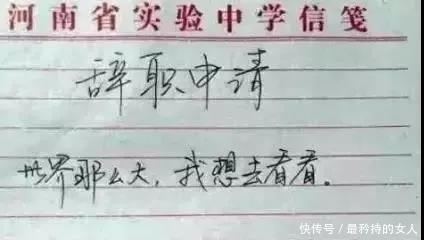 河南省实验中学信笺
辞职申请
世界那么大，我想去看看。
快传号/最矜持的女人